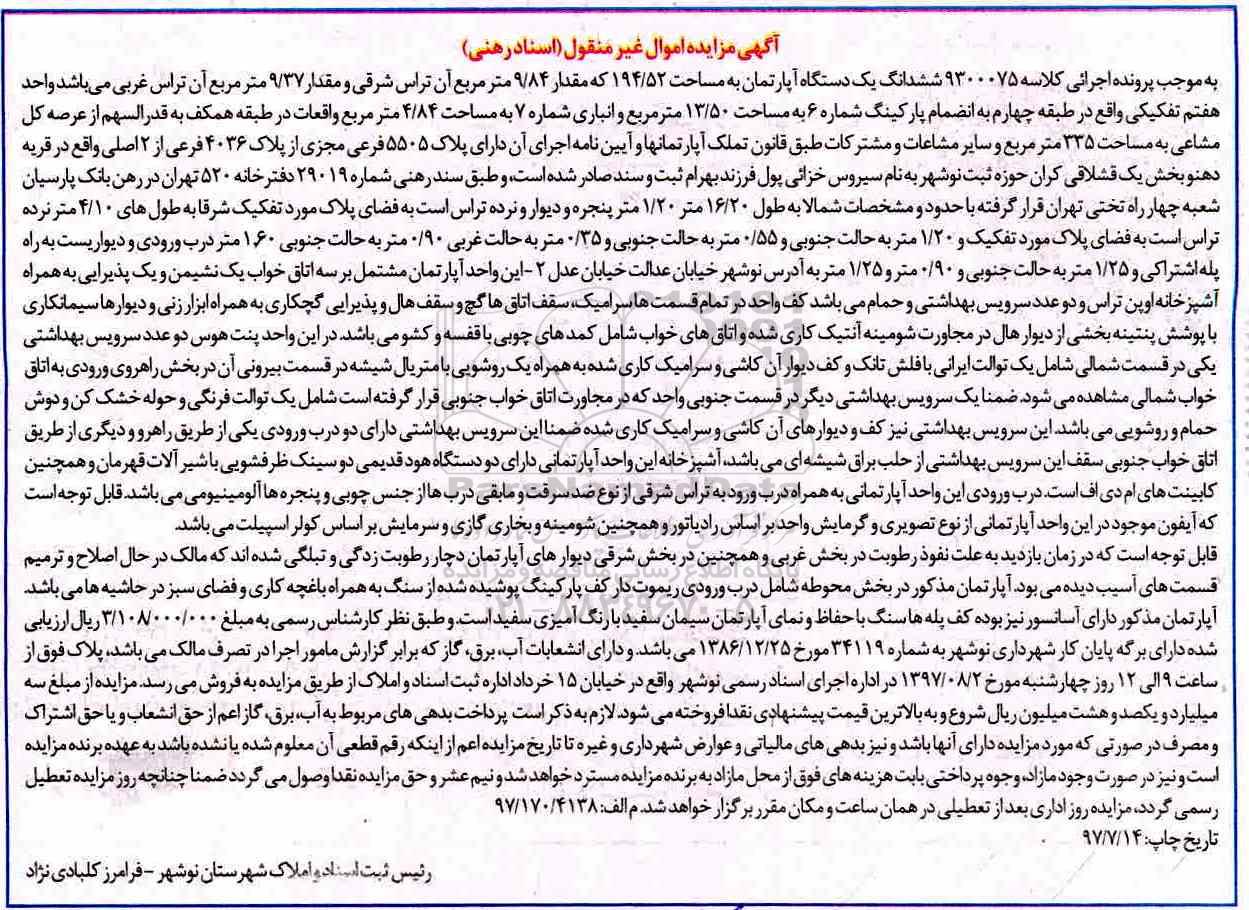 آگهی مزایده اموال غیر منقول (اسناد رهنی)
به موجب پرونده اجرائی کلاسه ۹۳۰۰۰۷۵ ششدانگ یک دستگاه آپارتمان به مساحت ۱۹۴/۵۲ که مقدار ۹/۸۴ متر مربع آن تراس شرقی و مقدار ۹/۳۷ متر مربع آن تراس غربی می‌باشد واحد
هفتم تفکیکی واقع در طبقه چهارم به انضمام پارکینگ شماره ۶ به مساحت ۱۳/۵۰ مترمربع و انباری شماره ۷ به مساحت ۴/۸۴ متر مربع واقعات در طبقه همکف به قدرالسهم از عرصه کل
مشاعی به مساحت ۳۳۵ متر مربع و سایر مشاعات و مشترکات طبق قانون تملک آپارتمانها و آیین نامه اجرای آن دارای پلاک ۵۵۰۵ فرعی مجزی از پلاک ۴۰۳۶ فرعی از ۲ اصلی واقع در قریه
دهنو بخش یک قشلاقی کران حوزه ثبت نوشهر به نام سیروس خزائی پول فرزند بهرام ثبت و سند صادر شده است، و طبق سند رهنی شماره ۲۹۰۱۹ دفترخانه ۵۲۰ تهران در رهن بانک پارسیان
شعبه چهار راه تختی تهران قرار گرفته با حدود و مشخصات شمالا به طول ۱۶/۲۰ متر ۱/۲۰ متر پنجره و دیوار و نرده تراس است به فضای پلاک مورد تفکیک شرقا به طول های ۴/۱۰ متر نرده
تراس است به فضای پلاک مورد تفکیک و ۱/۲۰ متر به حالت جنوبی و ۰/۵۵ متر به حالت جنوبی و ۰/۳۵ متر به حالت غربی ۰/۹۰ متر به حالت جنوبی ۱,۶۰ متر درب ورودی و دیواریست به راه
پله اشتراکی و ۱/۲۵ متر به حالت جنوبی و ۰/۹۰ متر و ۱/۲۵ متر به آدرس نوشهر خیابان عدالت خیابان عدل ۲ -این واحد آپارتمان مشتمل بر سه اتاق خواب یک نشیمن و یک پذیرایی به همراه
آشپزخانه اوپن تراس و دو عدد سرویس بهداشتی و حمام می باشد کف واحد در تمام قسمت ها سرامیک، سقف اتاق ها گچ و سقف هال و پذیرایی گچکاری به همراه ابزار زنی و دیوارها سیمانکاری
با پوشش پنتینه بخشی از دیوار هال در مجاورت شومینه آنتیک کاری شده و اتاق های خواب شامل کمد های چوبی با قفسه و کشو می باشد. در این واحد پنت هوس دو عدد سرویس بهداشتی
یکی در قسمت شمالی شامل یک توالت ایرانی با فلش تانک و کف دیوار آن کاشی و سرامیک کاری شده به همراه یک روشویی با متریال شیشه در قسمت بیرونی آن در بخش راهروی ورودی به اتاق
خواب شمالی مشاهده می شود. ضمنا یک سرویس بهداشتی دیگر در قسمت جنوبی واحد که در مجاورت اتاق خواب جنوبی قرار گرفته است شامل یک توالت فرنگی و حوله خشک کن و دوش
حمام و روشویی می باشد. این سرویس بهداشتی نیز کف و دیوارهای آن کاشی و سرامیک کاری شده ضمنا این سرویس بهداشتی دارای دو درب ورودی یکی از طریق راهرو و دیگری از طریق
اتاق خواب جنوبی سقف این سرویس بهداشتی از حلب براق شیشه ای می باشد، آشپزخانه این واحد آپارتمانی دارای دو دستگاه هود قدیمی دو سینک ظرفشویی با شیر آلات قهرمان و همچنین
کابینت های ام دی اف است. درب ورودی این واحد آپارتمانی به همراه درب ورود به تراس شرقی از نوع ضد سرقت و مابقی درب ها از جنس چوبی و پنجره ها آلومینیومی می باشد. قابل توجه است
که آیفون موجود در این واحد آپارتمانی از نوع تصویری و گرمایش واحد بر اساس رادیاتور و همچنین شومینه و بخاری گازی و سرمایش بر اساس کولر اسپیلت می باشد.
قابل توجه است که در زمان بازدید به علت نفوذ رطوبت در بخش غربی و همچنین در بخش شرقی دیوار های آپارتمان دچار رطوبت زدگی و تبلگی شده اند که مالک در حال اصلاح و ترمیم
قسمت های آسیب دیده می بود. آپارتمان مذکور در بخش محوطه شامل درب ورودی ریموت دار کف پارکینگ پوشیده شده از سنگ به همراه باغچه کاری و فضای سبز در حاشیه ها می باشد.
آپارتمان مذکور دارای آسانسور نیز بوده کف پله ها سنگ با حفاظ و نمای آپارتمان سیمان سفید با رنگ آمیزی سفید است. و طبق نظر کارشناس رسمی به مبلغ ۳/۱۰۸/۰۰۰/۰۰۰ ریال ارزیابی
شده دارای برگه پایان کار شهرداری نوشهر به شماره ۳۴۱۱۹ مورخ ۱۳۸۶/۱۲/۲۵ می باشد. و دارای انشعابات آب، برق، گاز که برابر گزارش مامور اجرا در تصرف مالک می باشد، پلاک فوق از
ساعت ۹ الی ۱۲ روز چهارشنبه مورخ ۱۳۹۷/۰۸/۲ در اداره اجرای اسناد رسمی نوشهر واقع در خیابان ۱۵ خرداد اداره ثبت اسناد و املاک از طریق مزایده به فروش می رسد. مزایده از مبلغ سه
میلیارد و یکصد و هشت میلیون ریال شروع و به بالاترین قیمت پیشنهادی نقدا فروخته می شود. لازم به ذکر است پرداخت بدهی های مربوط به آب، برق، گاز اعم از حق انشعاب و یا حق اشتراک
و مصرف در صورتی که مورد مزایده دارای آنها باشد و نیز بدهی های مالیاتی و عوارض شهرداری و غیره تا تاریخ مزایده اعم از اینکه رقم قطعی آن معلوم شده یا نشده باشد به عهده برنده مزایده
است و نیز در صورت وجود مازاد، وجوه پرداختی بابت هزینه های فوق از محل مازاد به برنده مزایده مسترد خواهد شد و نیم عشر و حق مزایده نقدا وصول می گردد ضمنا چنانچه روز مزایده تعطیل
رسمی گردد، مزایده روز اداری بعد از تعطیلی در همان ساعت و مکان مقرر برگزار خواهد شد. م الف: ۹۷/۱۷۰/۴۱۳۸
تاریخ چاپ: ۹۷/۷/۱۴
رئیس ثبت اسناد و املاک شهرستان نوشهر - فرامرز کلبادی نژاد
ParsNamadData
پایگاه اطلاع رسانی مناقصه و مزایده
۰۲۱-۸۸۳۴۹۶۷۰